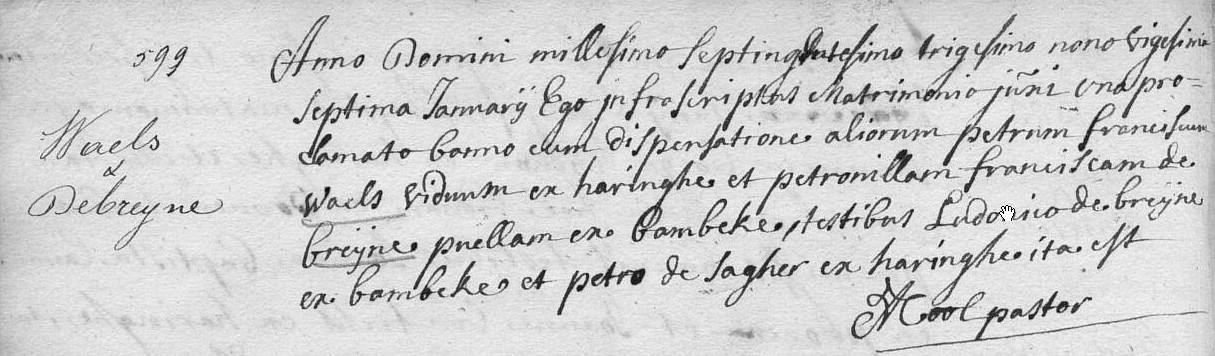 599
Anno Domini millesimo septingentesimo trigesimo nono vigesima
septima Januarij Ego infrascriptus Matrimonio juñi una pro-
clamato banno cum dispensatione aliorum petrum franciscum
Waels viduum ex haringhe et petronillam franciscam de
breyne puellam ex bambeke, testibus Ludovico de breyne
ex bambeke et petro de sagher ex haringhe ita est
pastor
Waels
&
Debreyne